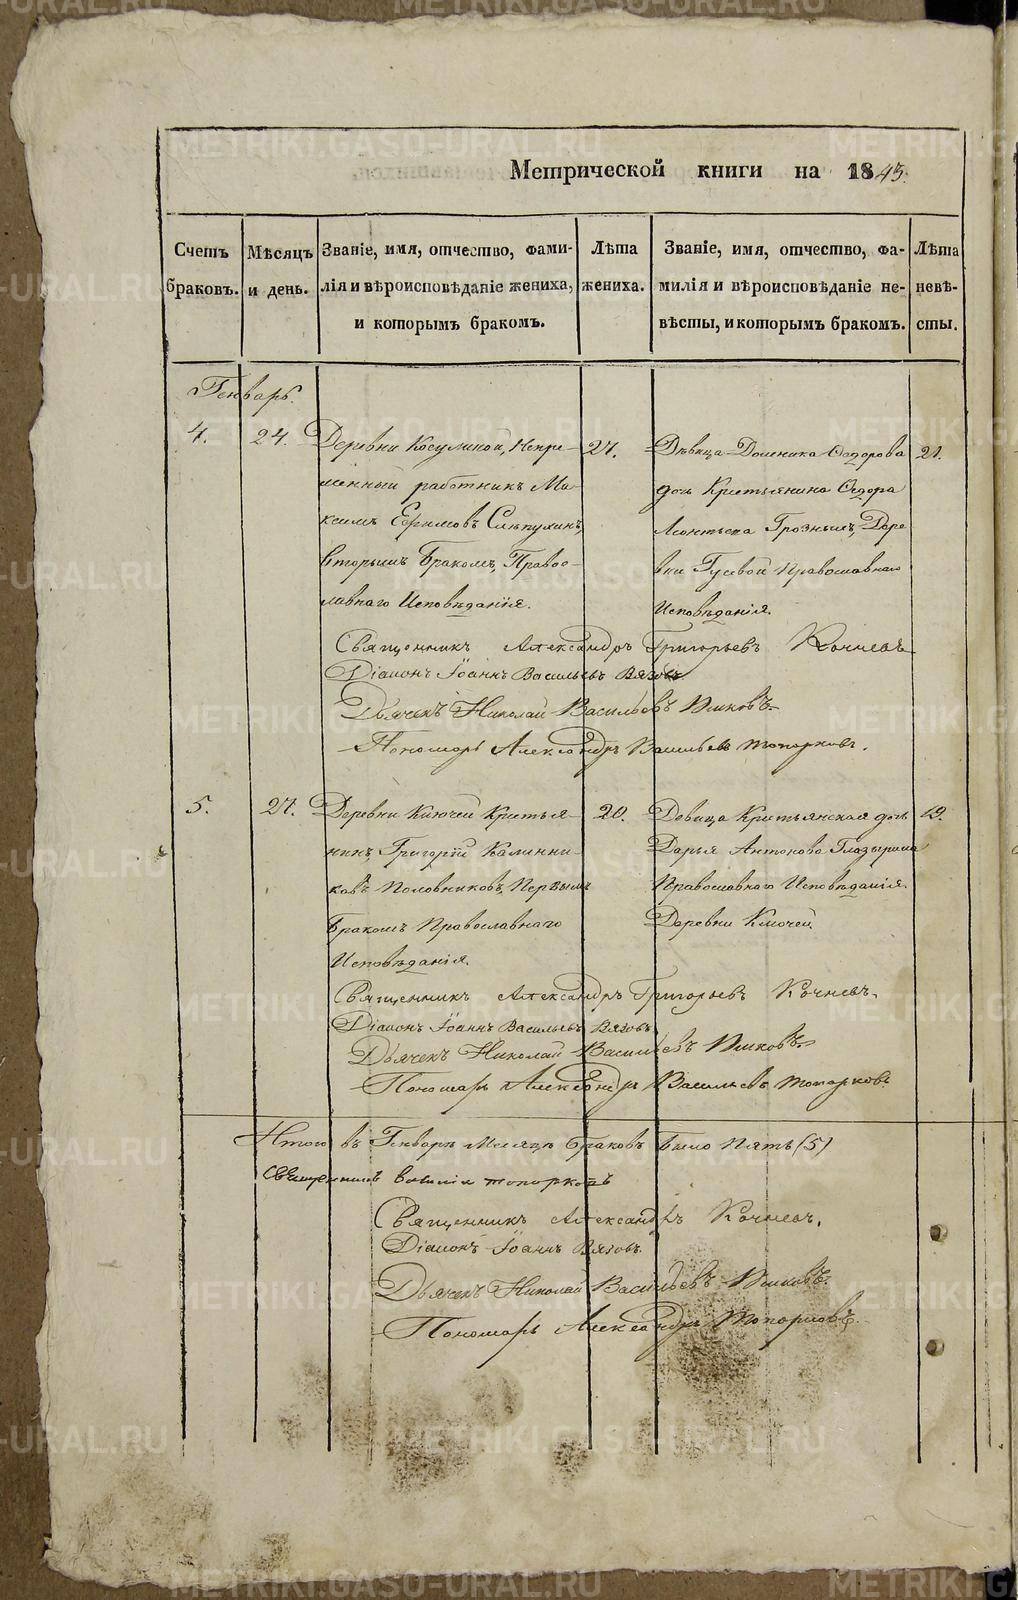 Метрической книги на 1843.
Счетъ браковъ.
Мѣсяцъ и день.
Званіе, имя, отчество, фами-
лія и вѣроисповѣданіе жениха,
и которымъ бракомъ.
Лѣта жениха.
Званіе, имя, отчество, фа-
милія и вѣроисповѣданіе не-
вѣсты, и которымъ бракомъ.
Лѣта невѣ-
сты.
Генварь.
4. 24. Деревни Косулиной, Непре-
менный работникъ Ма-
ксимъ Ефимовъ
вторымъ бракомъ, Право-
славнаго Исповѣданія.
27.
Дѣвица Домника Ѳедорова
дочь Крестьянина Ѳедора
Леонтьева Грозныхъ, Дере
вни Гусевой Православнаго
Исповѣданія.
21.
Священникъ Александръ Григорьевъ Кочневъ
Діаконъ Іоаннъ Васильевъ Вязовъ
Дьячекъ Николай Васильевъ
Пономарь Александръ Васильевъ Топорковъ.
5. 27. Деревни Ключей Крестья-
нинъ Григорій Калинни-
ковъ Половниковъ, Первымъ
Бракомъ Православнаго
Исповѣданія.
20.
Девица Крестьянская дочь
Дарья Антонова Глазырина
Православнаго Исповѣданія.
Деревни Ключей
19.
Священникъ Александръ Григорьевъ Кочневъ.
Діаконъ Іоаннъ Васильевъ Вязовъ
Дьячекъ Николай Васильевъ
Пономарь Александръ Васильевъ Топорковъ
Итого въ Генваре Месяце браковъ было пять (5)
Священникъ Топорковъ
Священникъ Александръ Кочневъ.
Діаконъ Іоаннъ Вязовъ.
Дьячекъ Николай Васильевъ
Пономарь Александръ Топорковъ.
METRIKI.GASO-URAL.RU